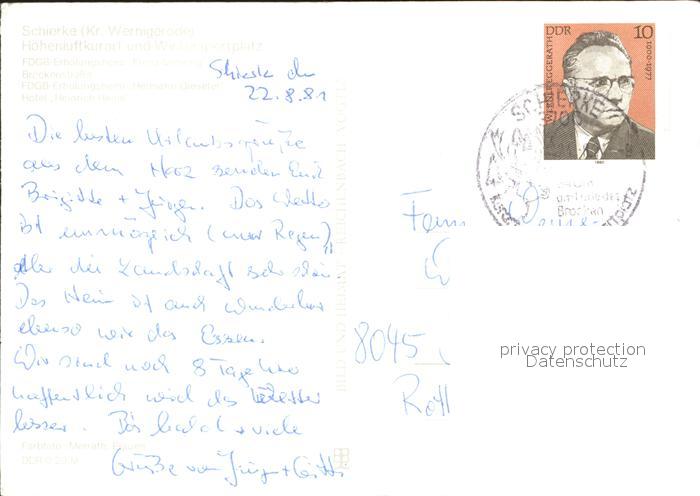 Schierke (Kr. Wernigerode)
Höhenluftkurort und Wintersportplatz
FDGB-Erholungsheim
Brockenstraße
FDGB-Erholungsheim „Hermann Gieseler"
Hotel „Heinrich Heine"
Schierke den
22.8.81
Die besten Urlaubsgrüße
aus dem Harz senden Euch
Brigitte + Jürgen. Das Wetter
ist unmöglich (nur Regen),
aber die Landschaft sehr schön.
Das Heim ist auch wunderbar
ebenso wie das Essen.
Wir sind noch 8 Tage hier
hoffentlich wird das Wetter
besser. Bis bald + viele
Grüße von Jürgen + Gitti
Farbfoto: Morrath, Plauen
BILD UND HEIMAT REICHENBACH
DDR 10
WERNER EGGERATH
1900-1977
1980
SCHIERKE
3705
Brocken
Fam.
8045
Rott
privacy protection
Datenschutz